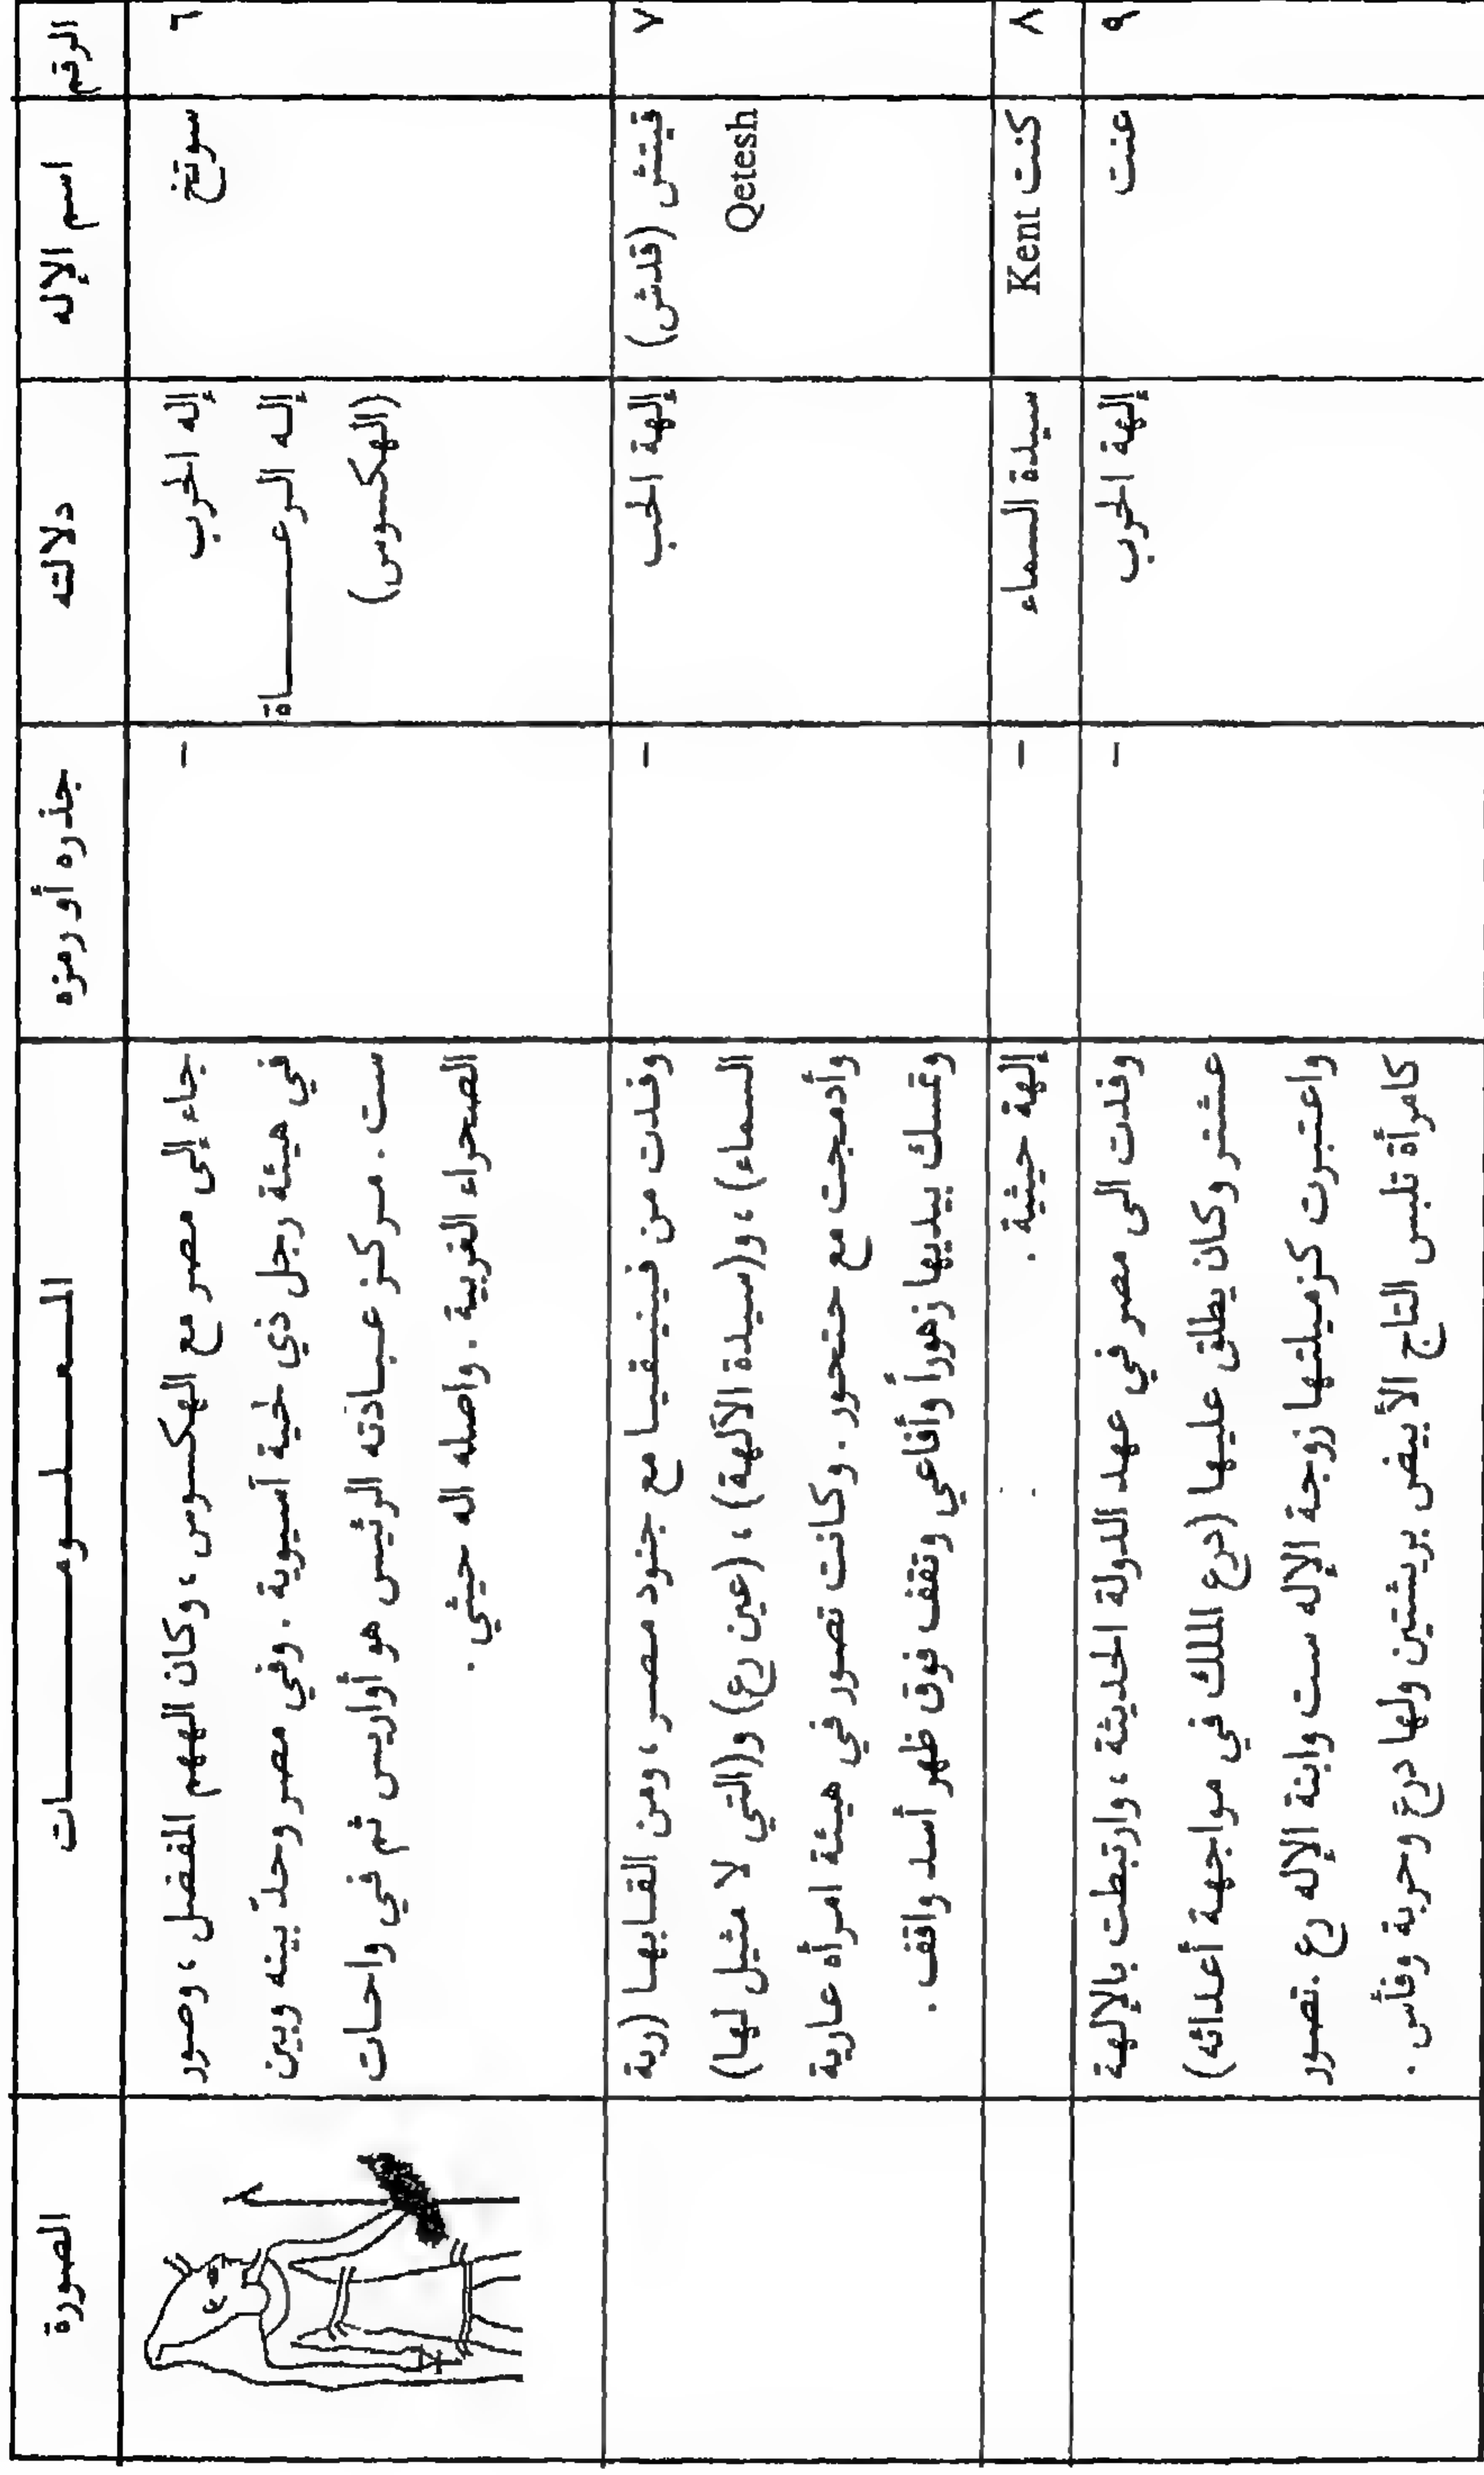 الرقم
اسم الإله
دلالته
جذره أو رمزه
المعلومات
الصورة
٦
سوتخ
إله الحرب
إله الرعاة
(الهكسوس)
-
جاء إلى مصر مع الهكسوس، وكان الههم المفضل، وصور
في هيئة رجل ذي لحية آسيوية. وفي مصر وحدّ بينه وبين
ست. مركز عبادته الرئيس هو أواريس ثم في واحات
الصحراء الغربية. واصله اله حيثي.
٧
قيتش (قدش)
Qetesh
إلهة الحب
-
وفدت من فينيقيا مع جنود مصر، ومن القابها (ربة
السماء)، و(سيدة الآلهة)، (عين رع) و(التي لا مثيل لها)
وأدمجت مع حتحور. وكانت تصور في هيئة امرأة عارية
وتمسك بيديها زهوراً وأفاعي وتقف فوق ظهر أسد واقف.
٨
كنت Kent
سيدة السماء
-
إلهة حيثية.
٩
عنت
إلهة الحرب
-
وفدت الى مصر في عهد الدولة الحديثة، وارتبطت بالإلهة
عشتر وكان يطلق عليها (درع الملك في مواجهة أعدائه)
واعتبرت كزميلتها زوجة الإله ست وابنة الإله رع. تصور
كامرأة تلبس التاج الأبيض بريشتين ولها درع وحربة وفأس.